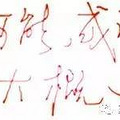 可能,或
大概